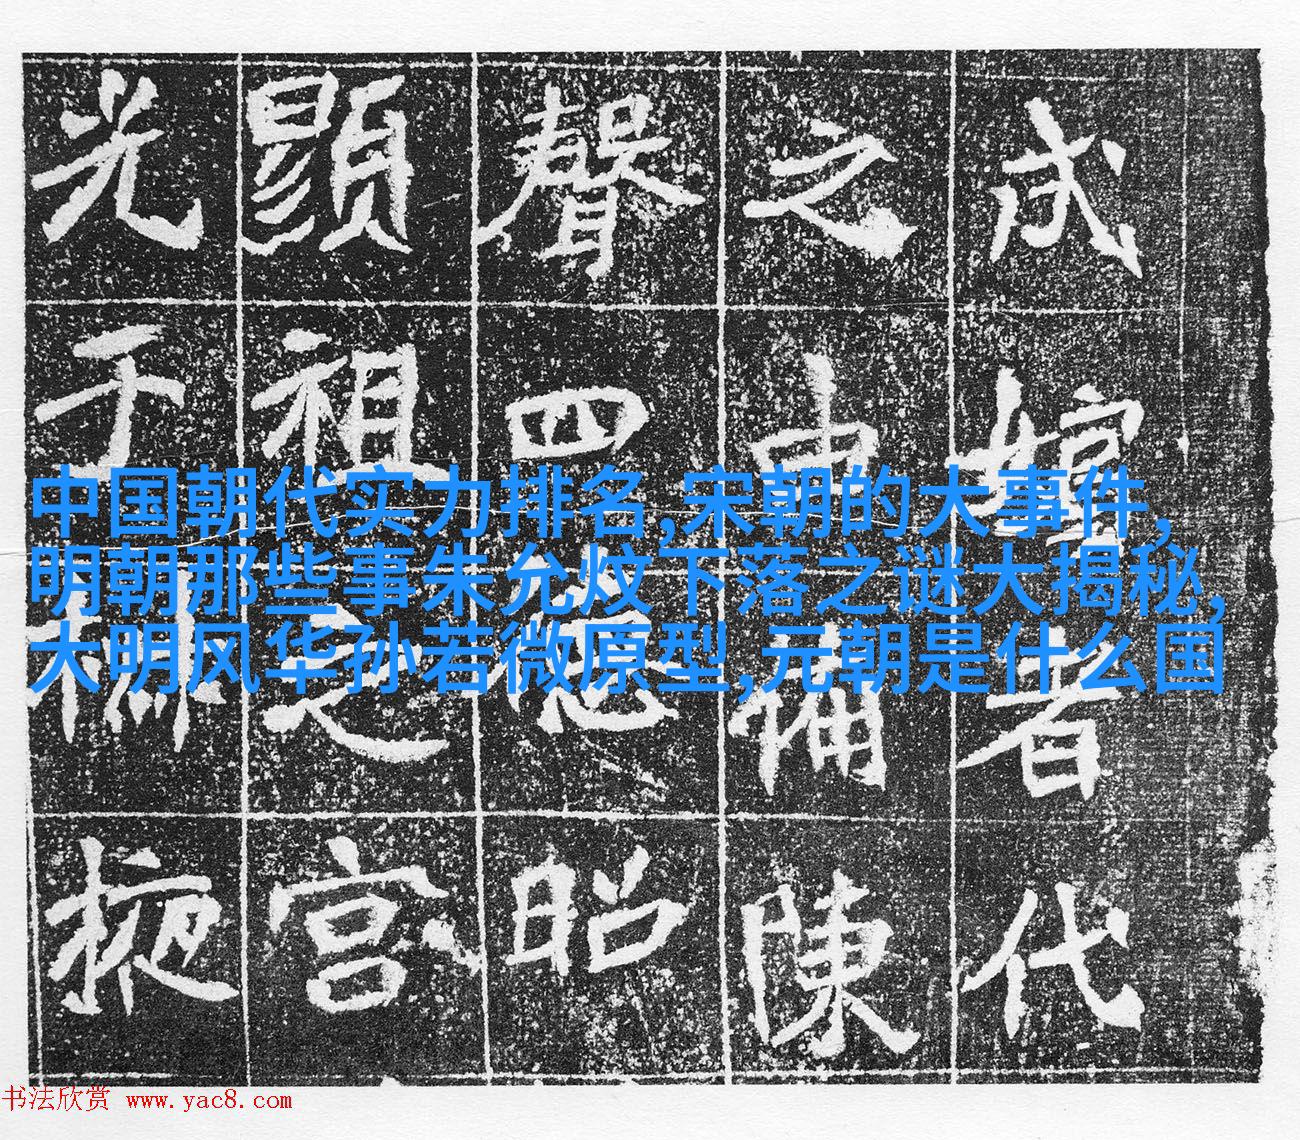 著代
之陳
聲四德昭
顯祖之宮
光于掖
中国朝代实力排名,宋朝的大事件,
明朝那些事朱允炆下落之谜大揭秘,
大明风华孙若微原型,元朝是什么国
书法欣赏 www.yac8.com